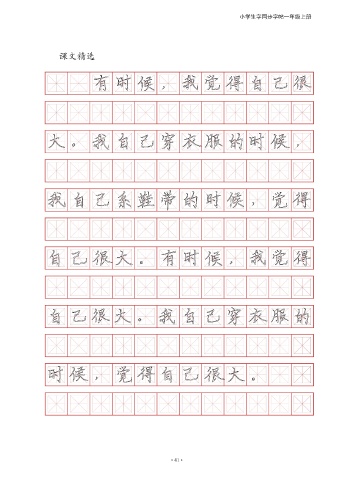 小学生字同步字帖一年级上册
课文精选
有时候，我觉得自己很
大。我自己穿衣服的时候，
我自己系鞋带的时候，觉得
自己很大。有时候，我觉得
自己很大。我自己穿衣服的
时候，觉得自己很大。